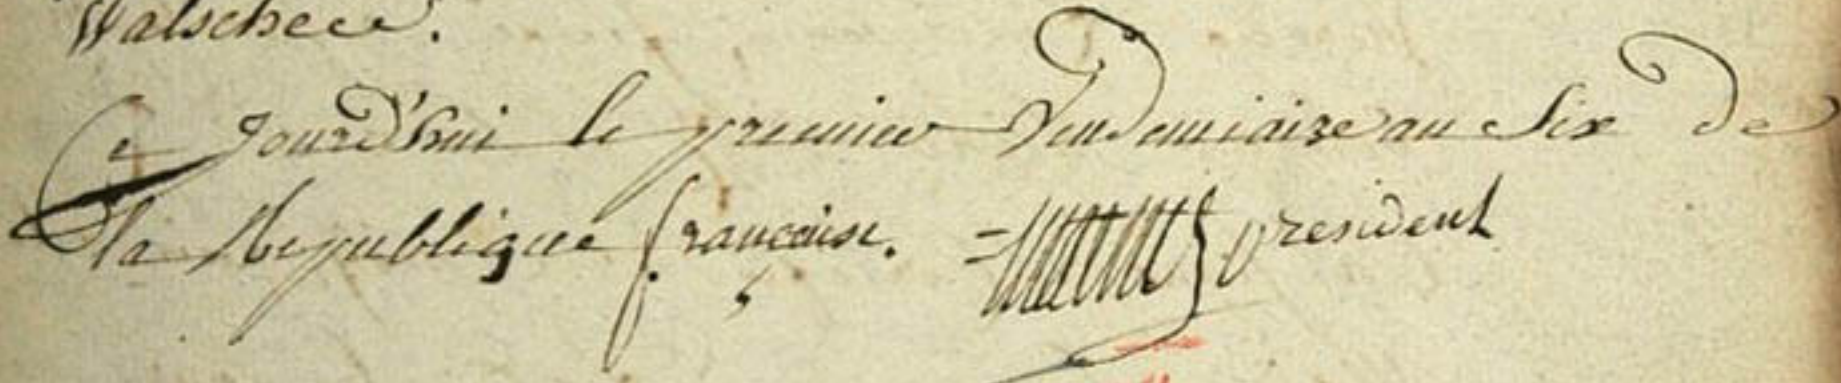 Walscheee.
Ce Jourd'hui le premier Vendemiaire an Six De
la Republique française. president